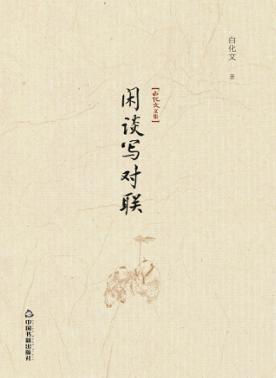 白化文
著
【白化文文集】
闲谈写对联
中国书籍出版社